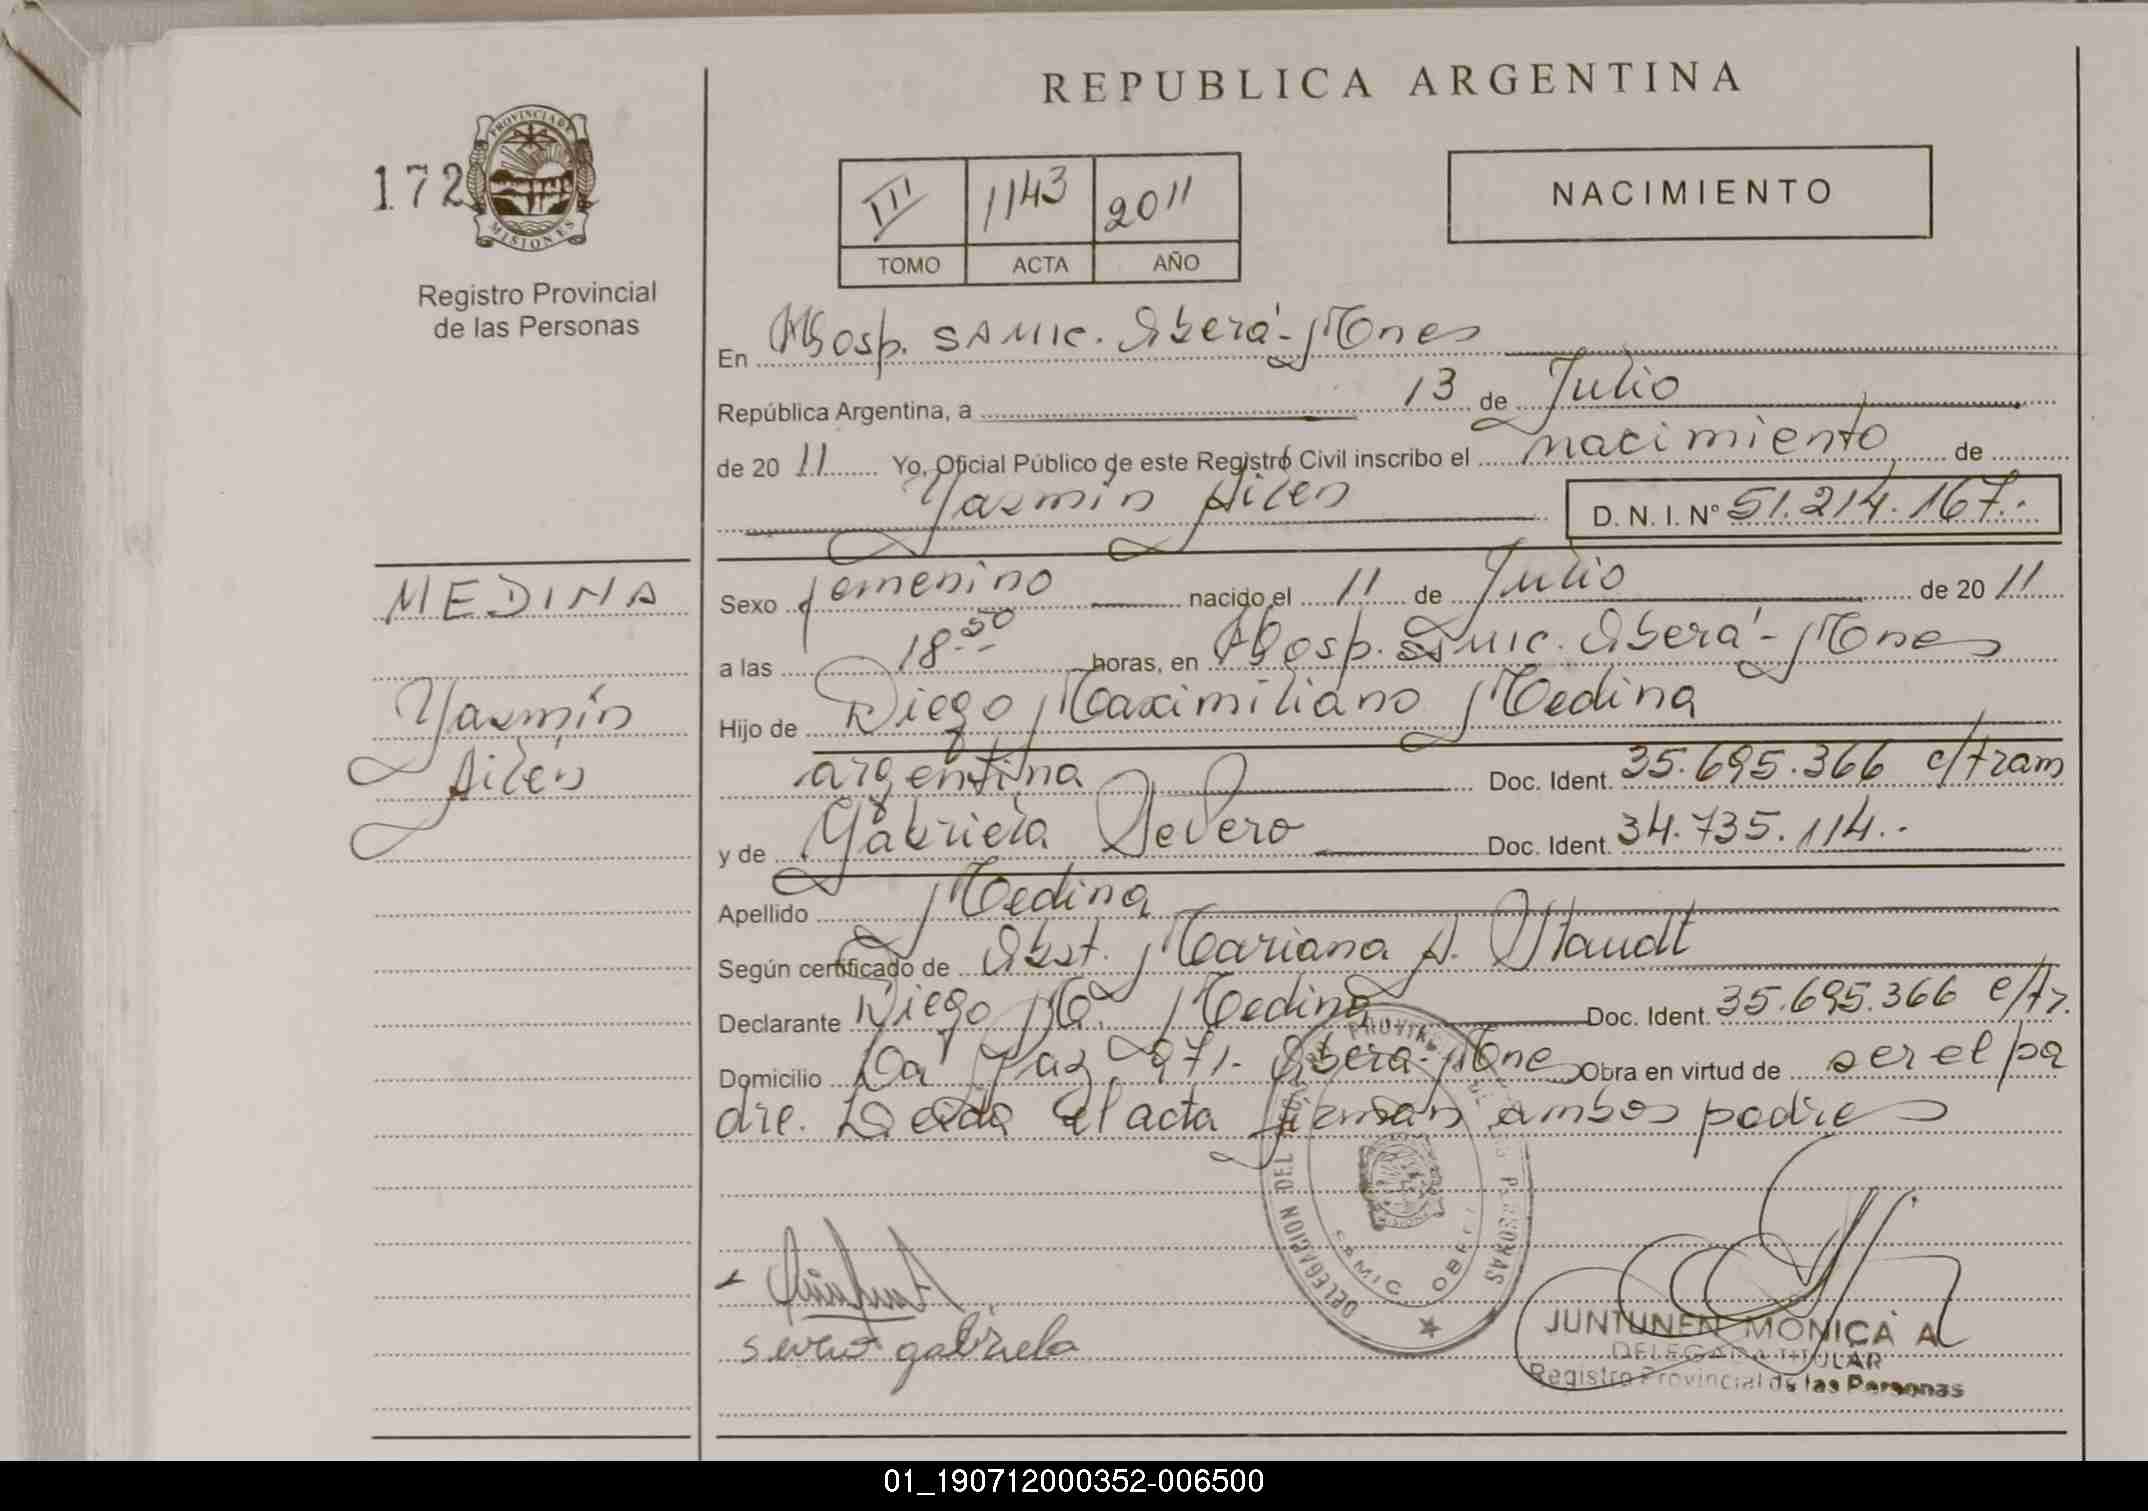 REPUBLICA ARGENTINA
172
PROVINCIA DE MISIONES
Registro Provincial
de las Personas
III 1143 2011
TOMO ACTA AÑO
NACIMIENTO
En Hosp. SAMIC. Oberá-Mnes
República Argentina, a 13 de Julio
de 2011 Yo, Oficial Público de este Registro Civil inscribo el nacimiento de
Yazmín Ailén D. N. I. N° 51.214.167.-
MEDINA
Yazmín
Ailén
Sexo femenino nacido el 11 de Julio de 2011
a las 18.50 horas, en Hosp. SAMIC. Oberá-Mnes
Hijo de Diego Maximiliano Medina
argentina Doc. Ident. 35.695.366 c/tram
y de Gabriela Severo Doc. Ident. 34.735.114.-
Apellido Medina
Según certificado de Obst. Mariana A. Staudt
Declarante Diego Mo. Medina Doc. Ident. 35.695.366 c/tr.
Domicilio La Paz 971- Oberá-Mnes Obra en virtud de ser el pa
dre. Leída el acta firman ambos padres
DELEGACION DEL PERSONAS
SAMIC OBERA
severo gabriela
JUNTUNEN MONICA A
DELEGADA TITULAR
Registro Provincial de las Personas
01_190712000352-006500